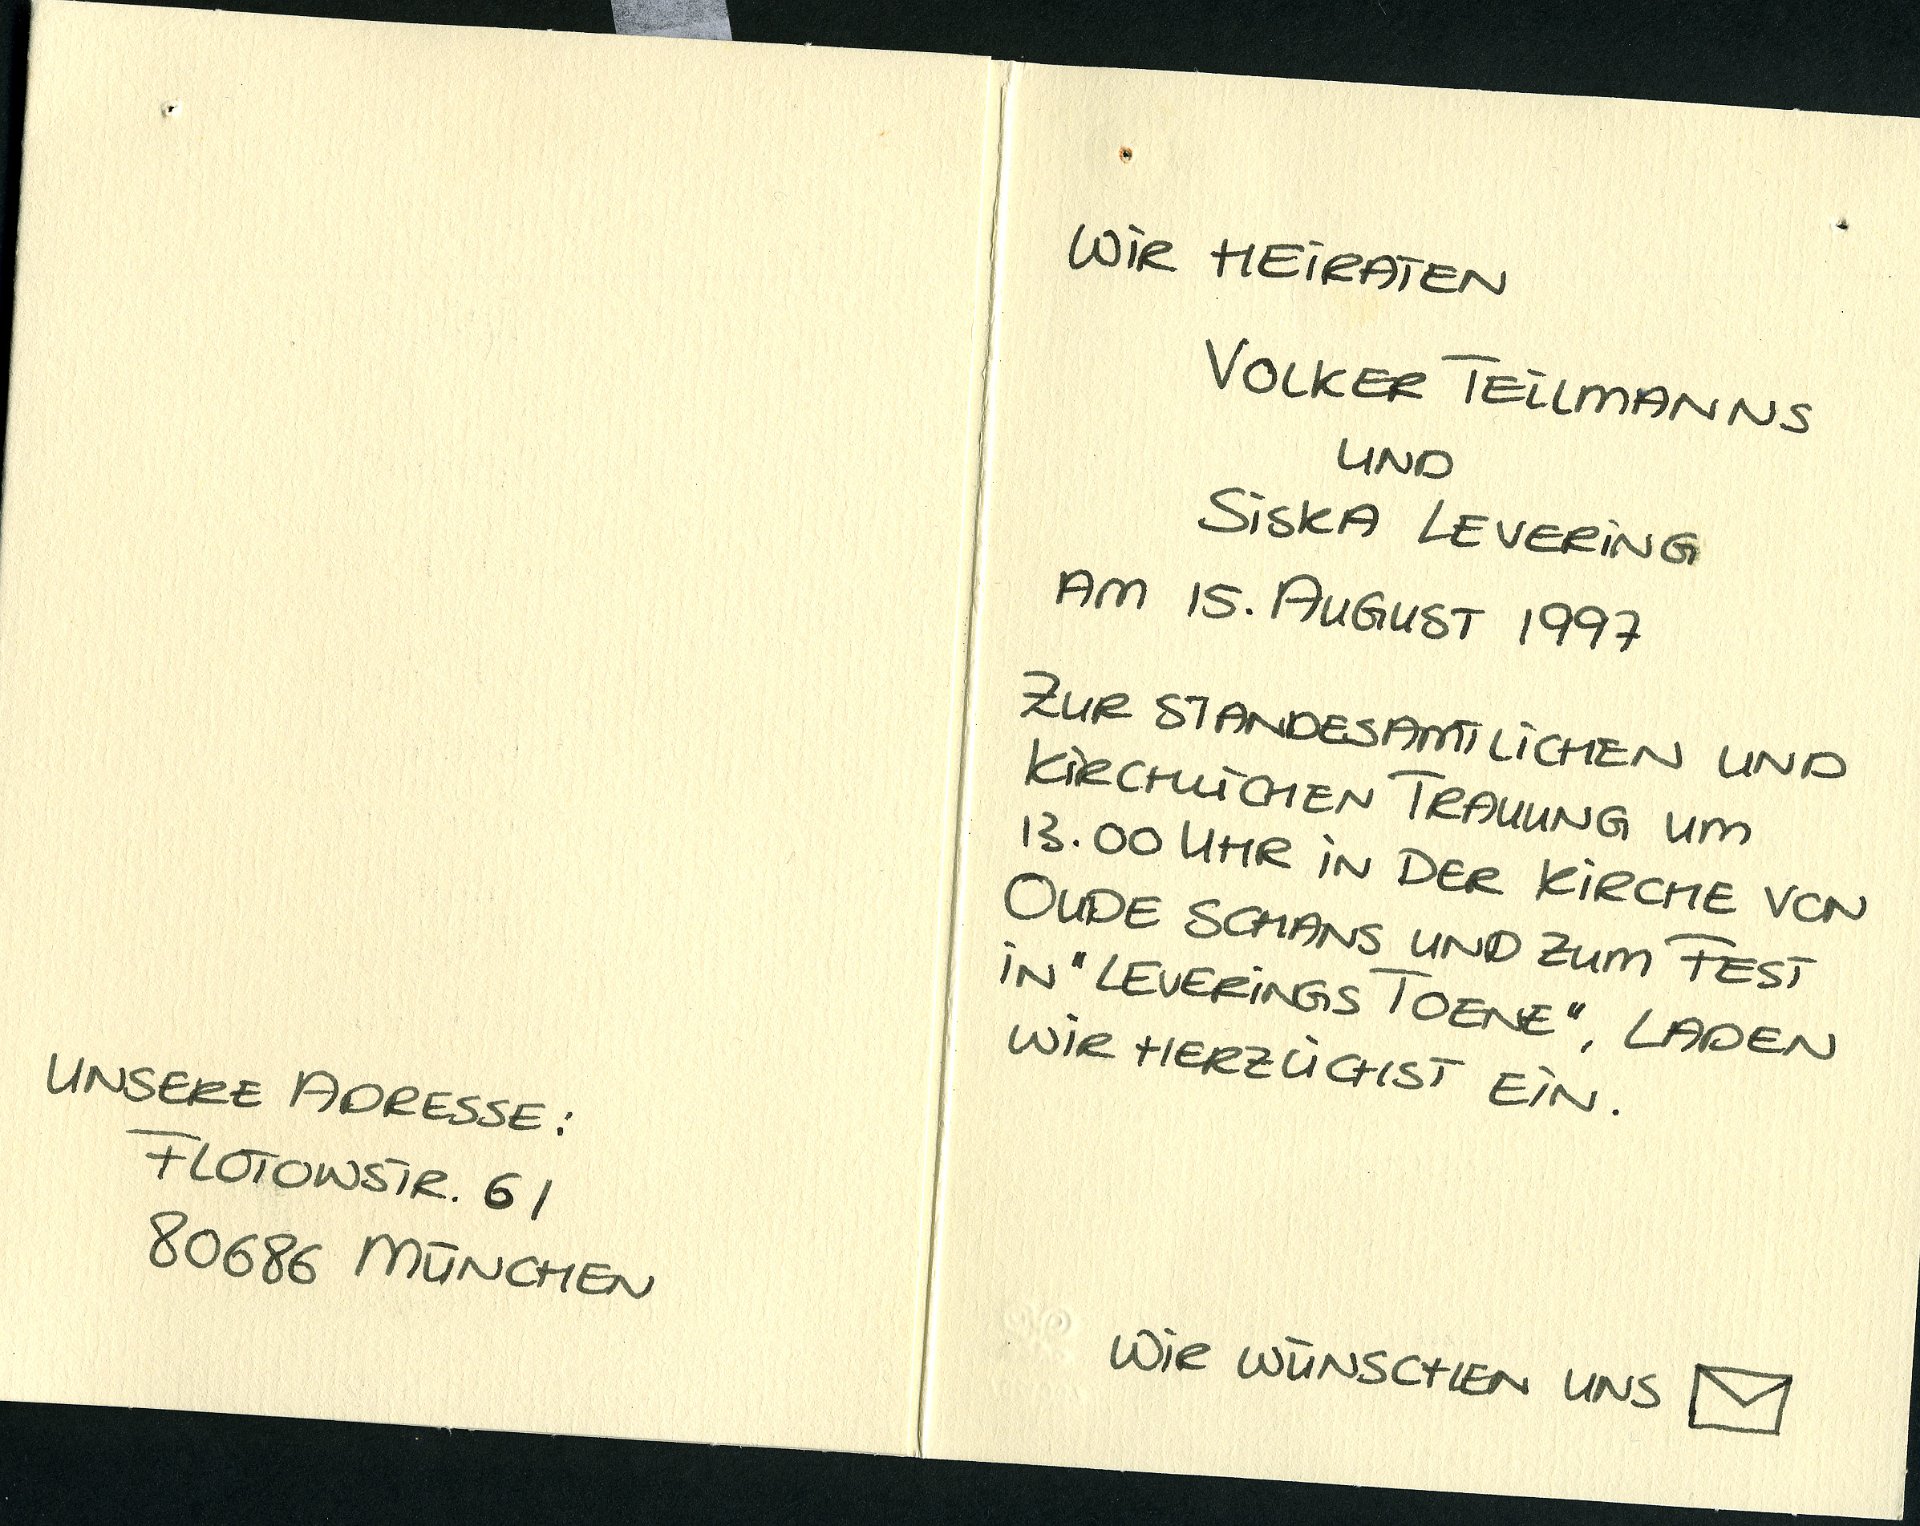 UNSERE ADRESSE:
FLOTOWSTR. 61
80686 MÜNCHEN
WIR HEIRATEN
VOLKER TEILMANNS
UND
SISKA LEVERING
AM 15. AUGUST 1997
ZUR STANDESAMTLICHEN UND
KIRCHLICHEN TRAUUNG UM
13.00 UHR IN DER KIRCHE VON
OUDE SCHANS UND ZUM FEST
IN "LEVERINGS TOENE", LADEN
WIR HERZLICHST EIN.
WIR WÜNSCHEN UNS